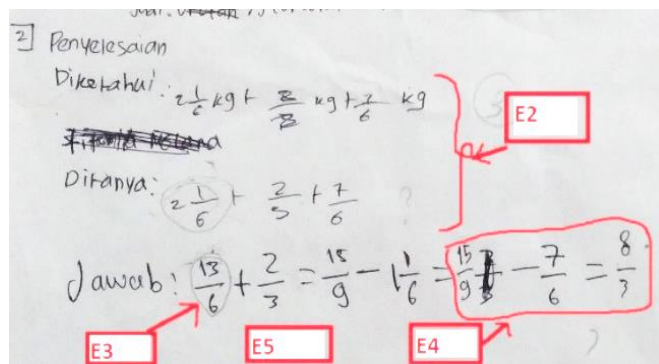 2] Penyelesaian
Diketahui: 2 1/6 kg + 2/3 kg + 7/6 kg
E2
Ditanya: 2 1/6 + 2/3 + 7/6 ?
Jawab: 13/6 + 2/3 = 15/9 - 1 1/6 = 15/9 - 7/6 = 8/3
E3 E5 E4